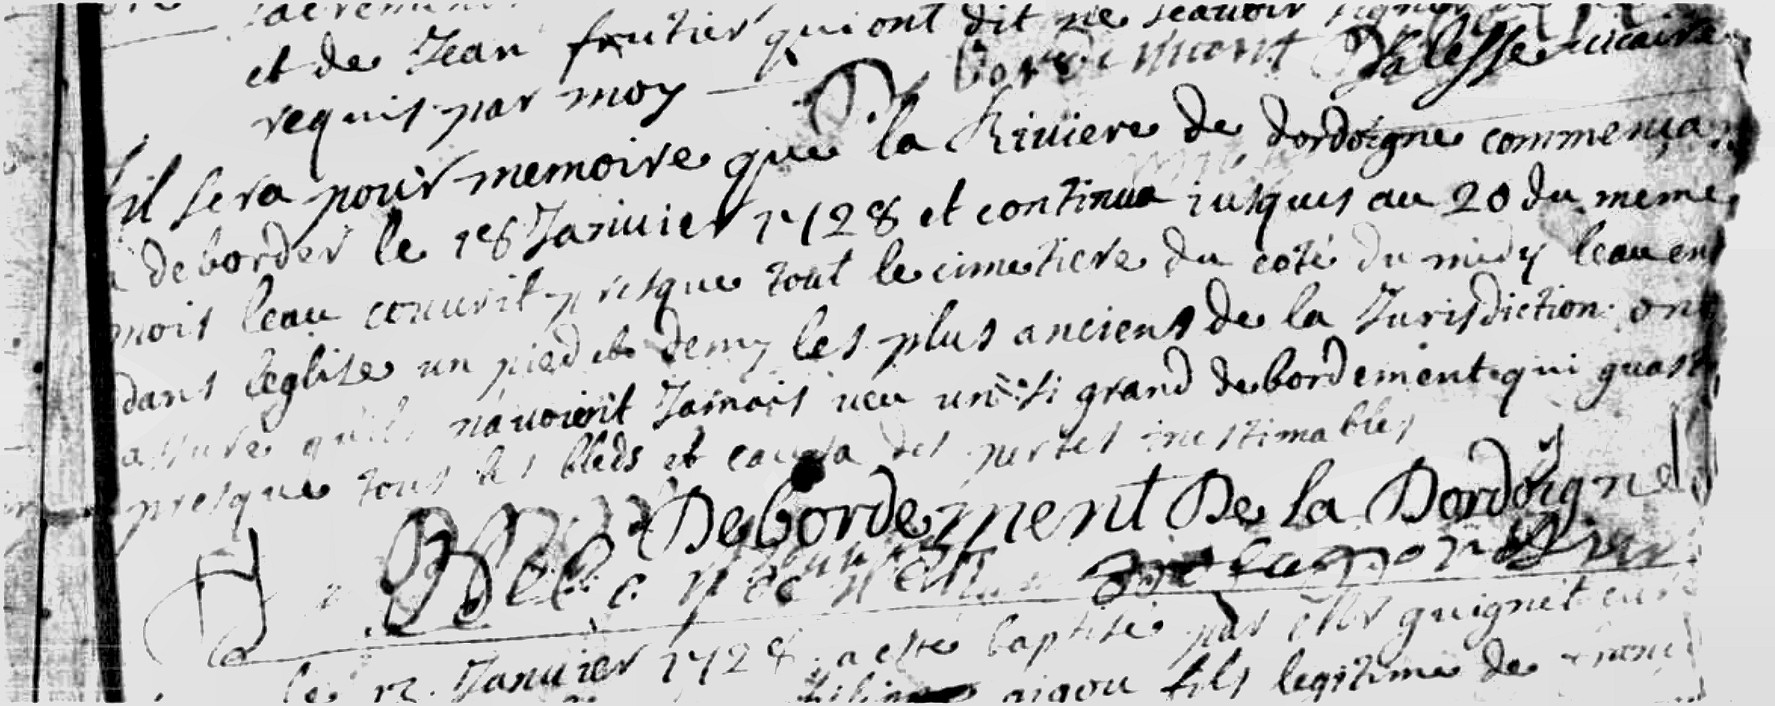 sacrement
et de Jean foutier qui ont dit ne scauoir signer
requis par moy Salesse uicaire
il sera pour memoire que la Riuiere de dordoigne commença
a deborder le 18 Januier 1728 et continua iusques au 20 du meme
mois leau couurit presque tout le cimetiere du coté du midy leau ent
dans leglise un pied et demy les plus anciens de la Jurisdiction ont
assuré quils nauoient Jamais ueu un si grand debordement qui guast
presque tous les bleds et causa des pertes inestimables
Debordement De la Dordoigne
le 12 Januier 1728 a esté baptisé par Mr guignet curé
aigou fils legitime de